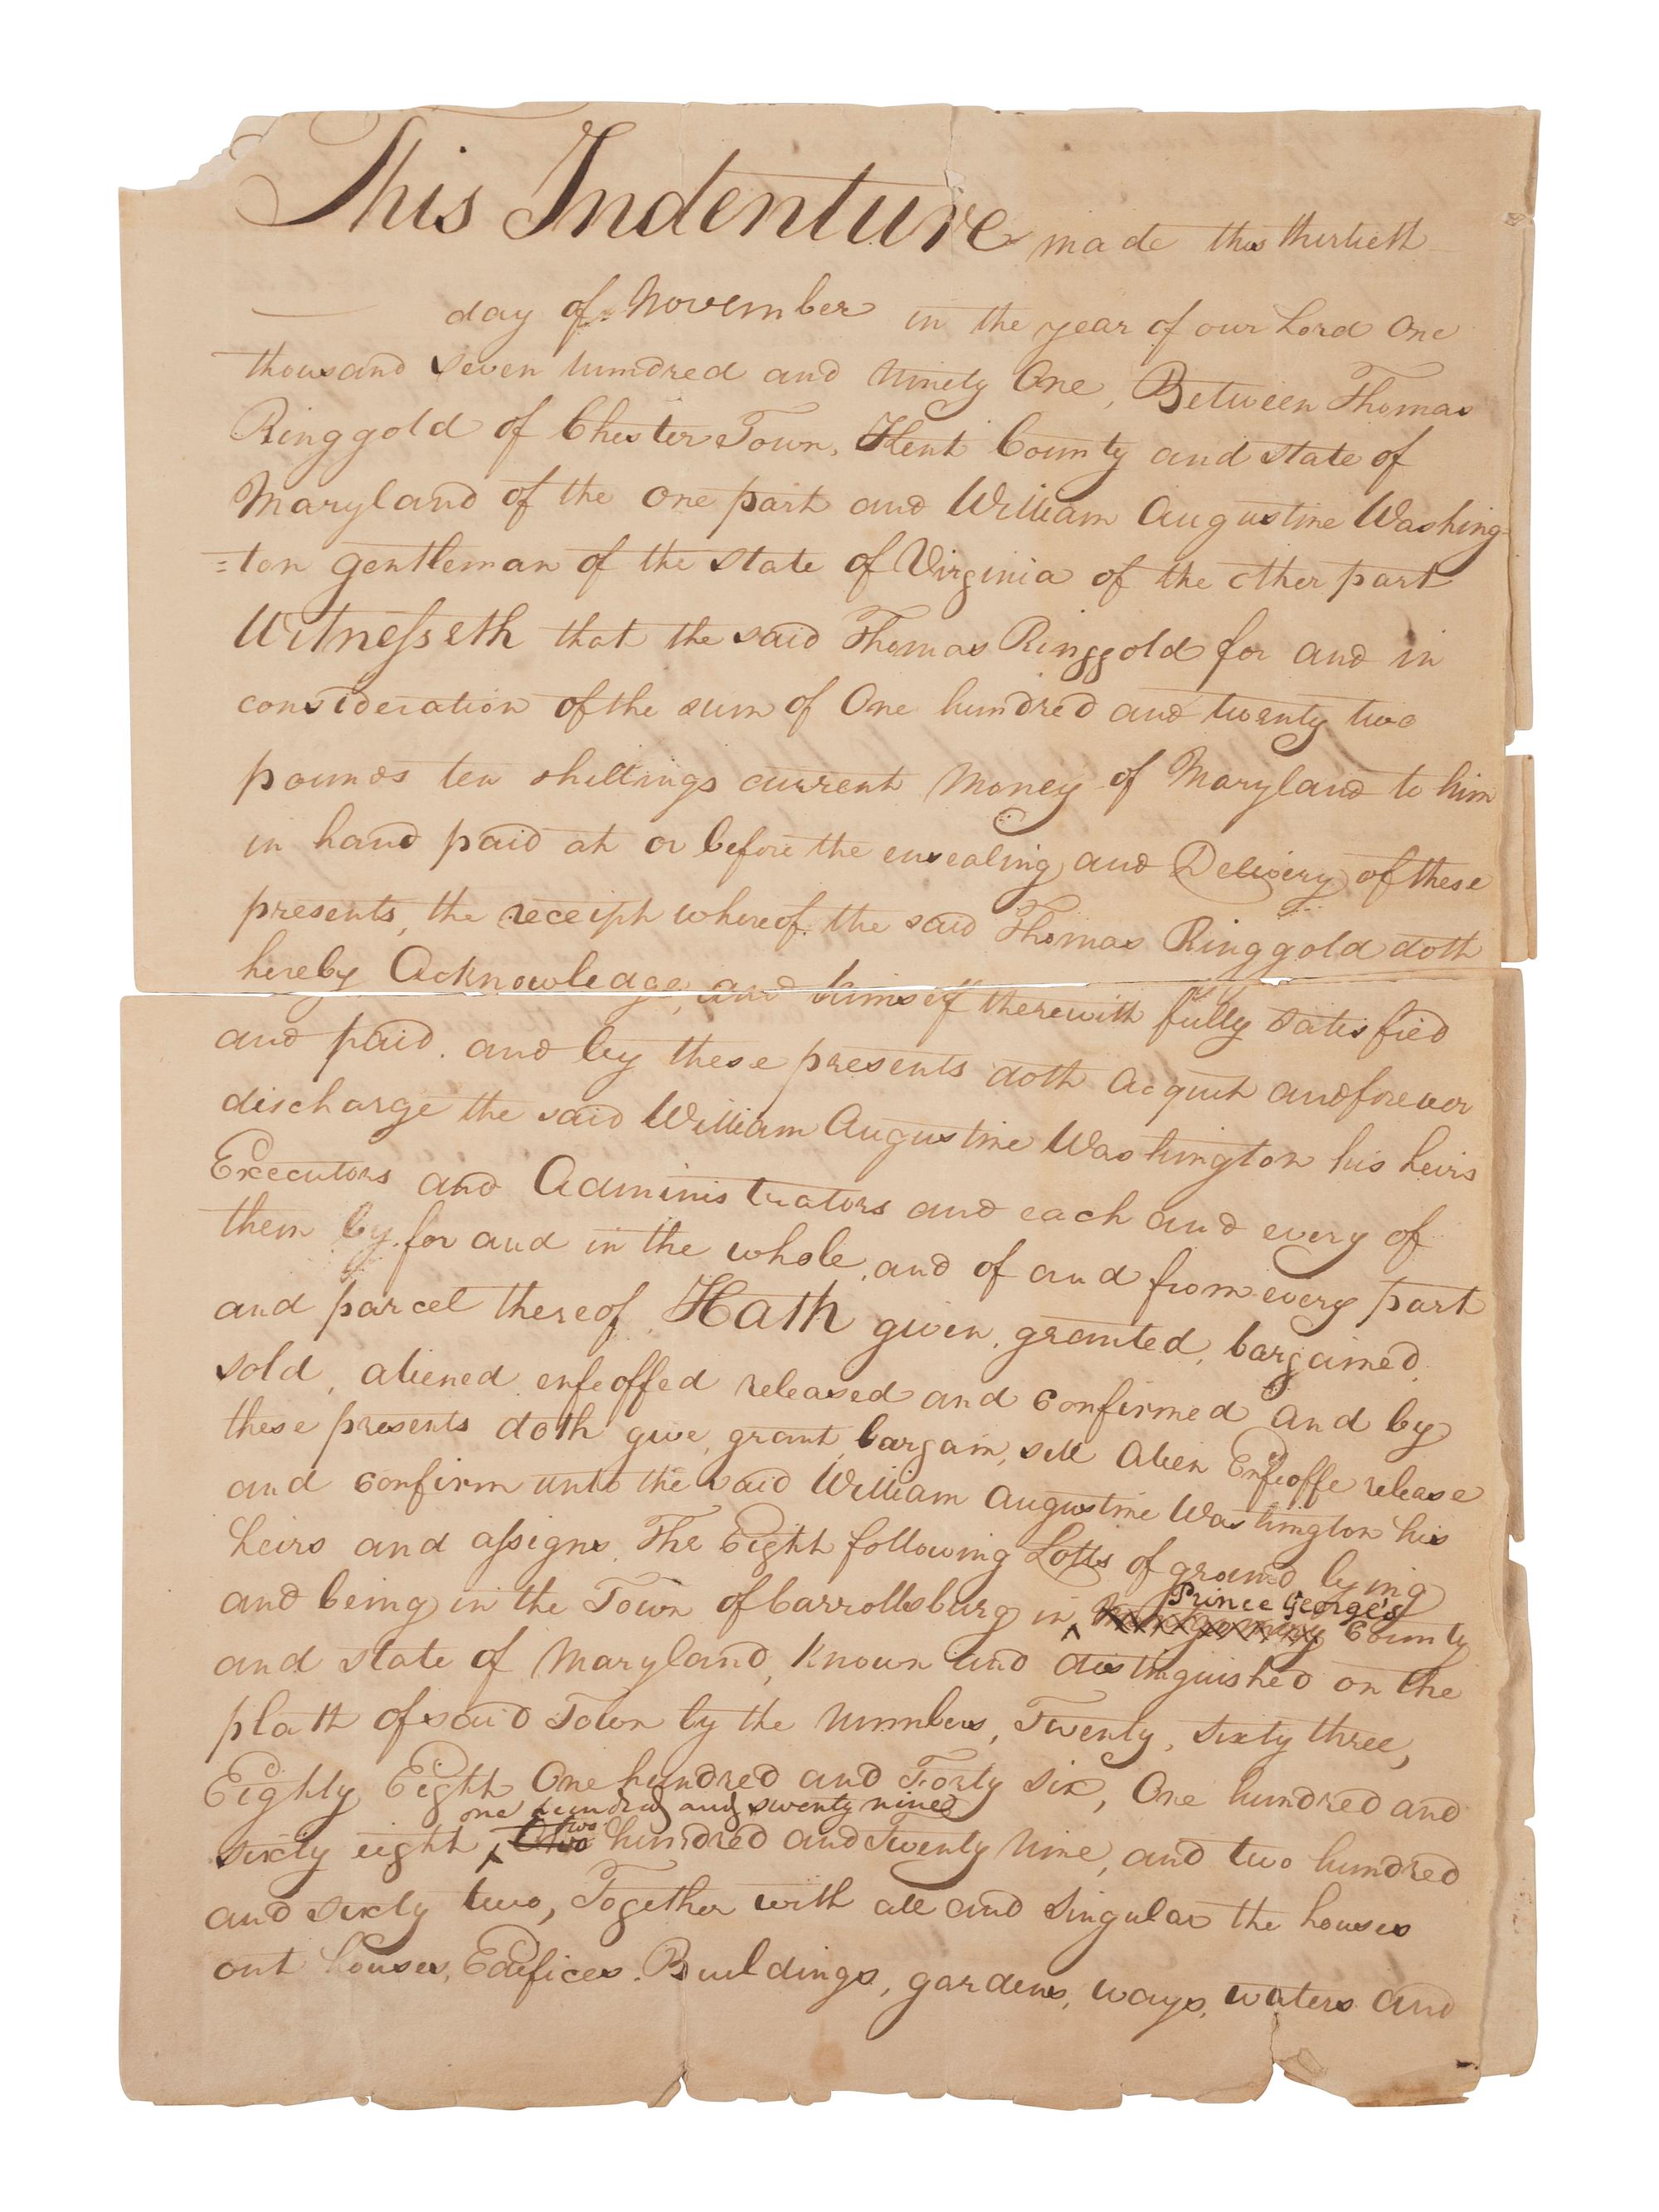 This Indenture made this thirtieth
day of November in the year of our Lord One
thousand seven hundred and Ninety One, Between Thomas
Ringgold of Chester Town, Kent County and State of
Maryland of the one part and William Augustine Washing-
=ton gentleman of the State of Virginia of the other part
Witnesseth that the said Thomas Ringgold for and in
consideration of the sum of One hundred and twenty two
pounds ten shillings current Money of Maryland to him
in hand paid at or before the ensealing and Delivery of these
presents, the receipt whereof the said Thomas Ringgold doth
hereby Acknowledge, and himself therewith fully satisfied
and paid. and by these presents doth acquit and forever
discharge the said William Augustine Washington his heirs
Executors and Administrators and each and every of
them by, for and in the whole, and of and from every part
and parcel thereof, Hath given, granted, bargained,
sold, aliened, enfeoffed released and confirmed and by
these presents doth give, grant, bargain, sell Alien Enfeoffe release
and confirm unto the said William Augustine Washington his
heirs and assigns, The Eight following Lotts of ground, lying
Prince George's
and being in the Town of Carrollsburg in County
and State of Maryland, Known and distinguished on the
platt of said Town by the Numbers, Twenty, Sixty three,
Eighty Eight One hundred and Forty six, One hundred and
one hundred and seventy nine
sixty eight, two hundred and Twenty Nine, and two hundred
and sixty two, Together with all and Singular the houses
out houses, Edifices, Buildings, gardens, ways, waters and